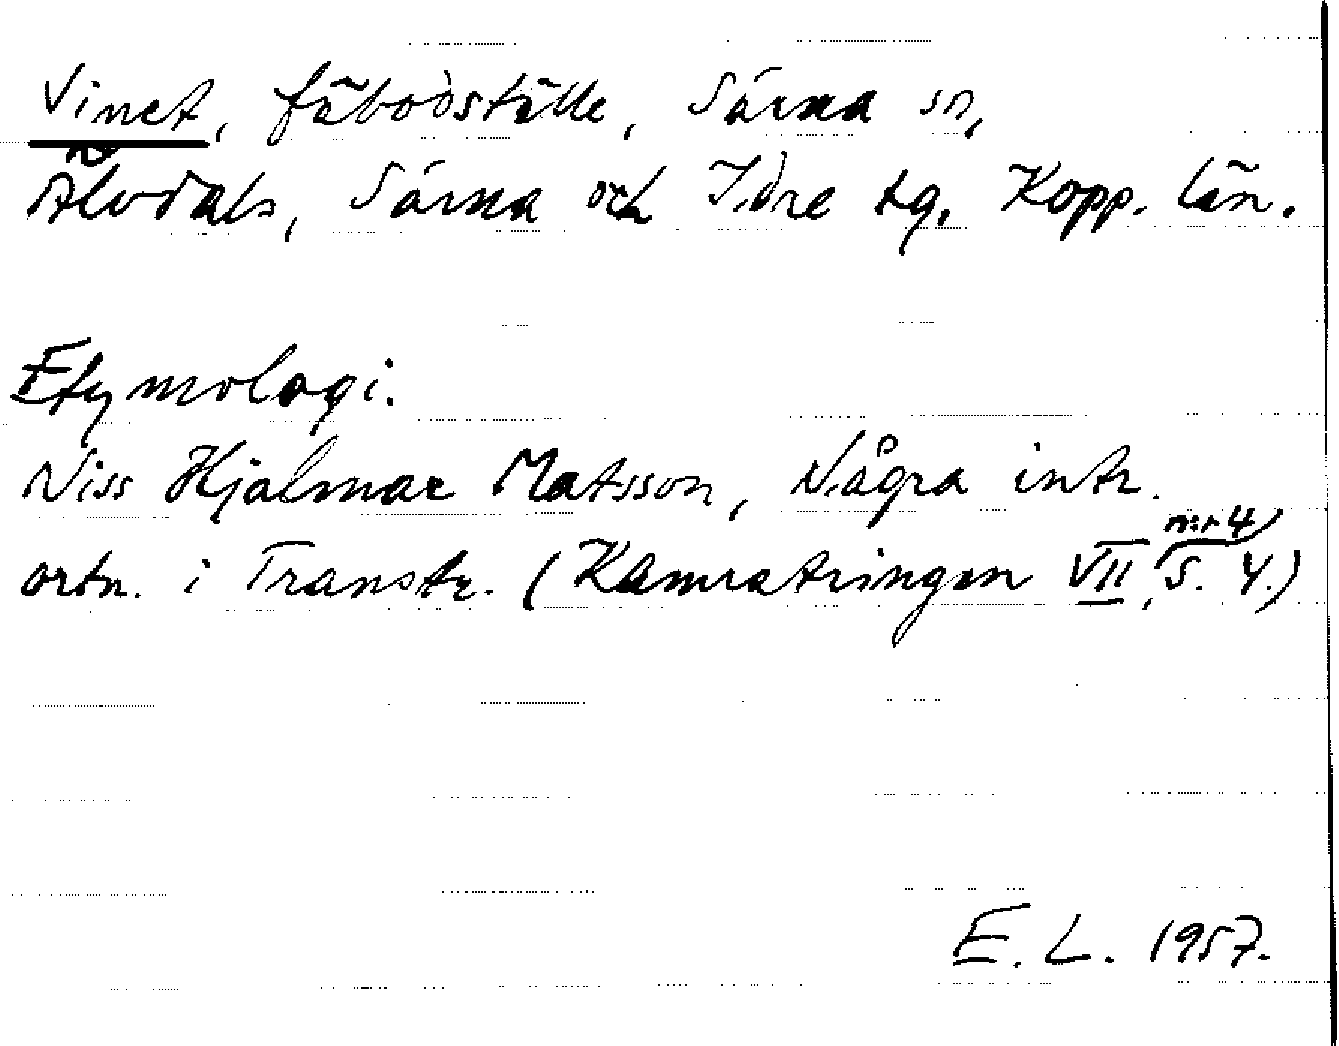 Vinet, fäbodställe, Särna sn,
Älvdals, Särna och Idre tg. Kopp. län.
Etymologi.
Niss Hjalmar Matsson, Några intr.
ortn. i Transtr. (Kamratringen VII, nr 4, S. 4.)
E. L. 1957.